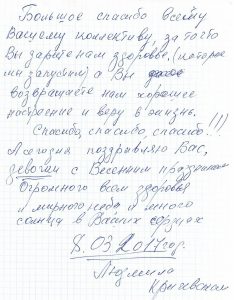 Большое спасибо всему
Вашему коллективу, за то что
Вы дарите нам здоровье, (которое
мы запустили) а Вы
возвращаете нам хорошее
настроение и веру в жизнь.
Спасибо, спасибо, спасибо!!!
А сегодня поздравляю Вас,
девочки с Весенним праздником
Огромного всем здоровья
и мирного неба и много
солнца в Ваших сердцах
8.03.2017 год.
Людмила